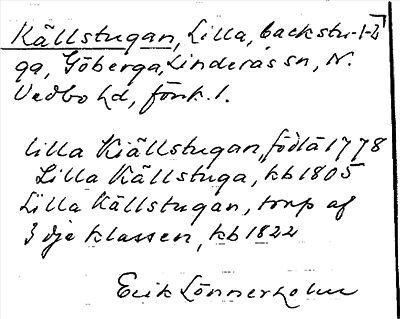 Källstugan, Lilla, backstu-
ga, Göberga, Linderås sn, N.
Vedbo hd, förk. 1.
Lilla Kiällstugan, födla 1778
Lilla Källstuga, kb 1805
Lilla Källstugan, torp af
3dje klassen, kb 1822
Erik Lönnerholm